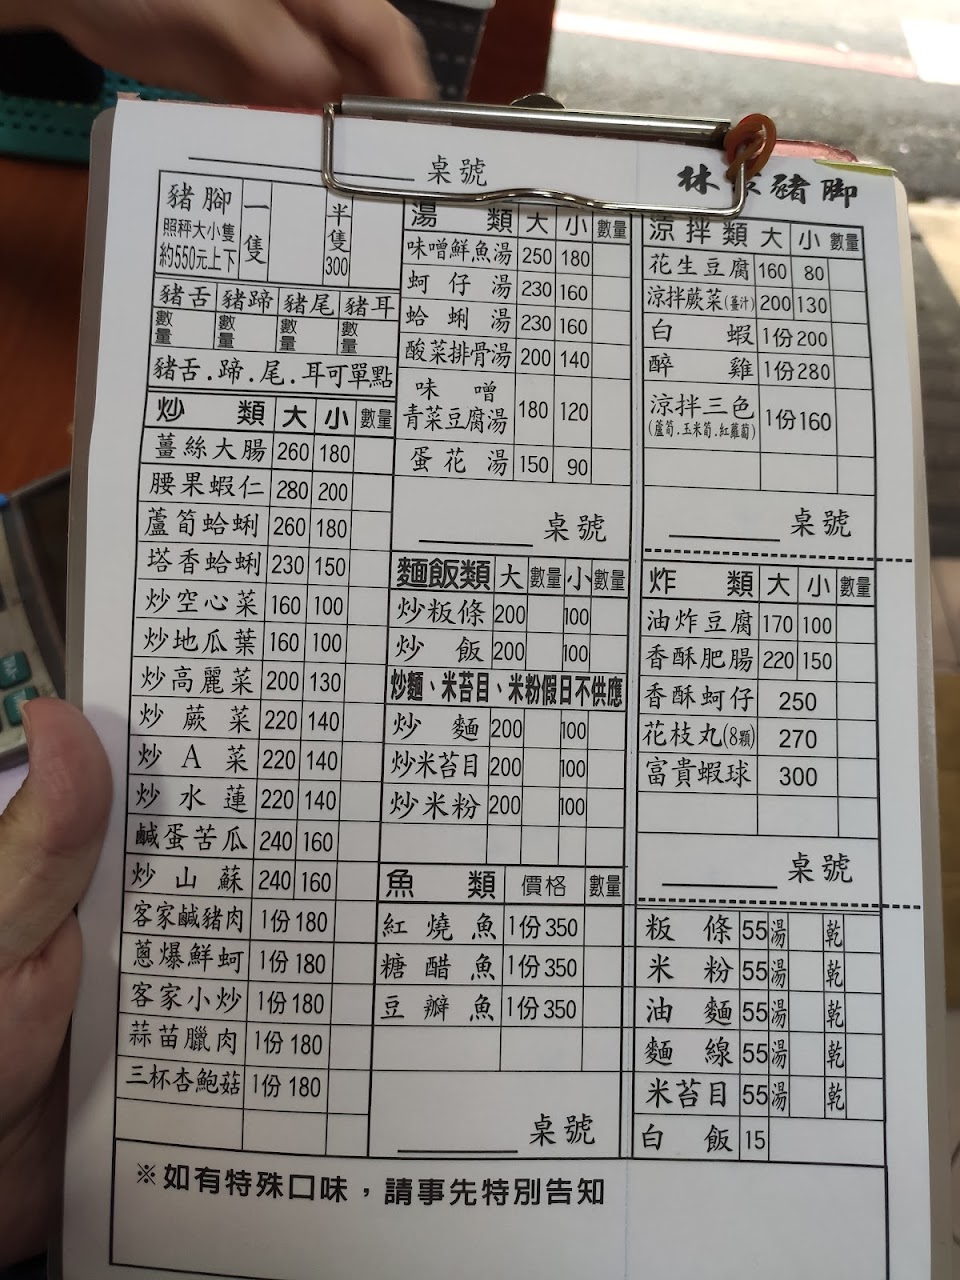 桌號
林家豬腳
豬腳 一隻 半隻 300
照秤大小隻
約550元上下
豬舌 豬蹄 豬尾 豬耳
數量 數量 數量 數量
豬舌.蹄.尾.耳可單點
炒類 大 小 數量
薑絲大腸 260 180
腰果蝦仁 280 200
蘆筍蛤蜊 260 180
塔香蛤蜊 230 150
炒空心菜 160 100
炒地瓜葉 160 100
炒高麗菜 200 130
炒蕨菜 220 140
炒A菜 220 140
炒水蓮 220 140
鹹蛋苦瓜 240 160
炒山蘇 240 160
客家鹹豬肉 1份180
蔥爆鮮蚵 1份180
客家小炒 1份180
蒜苗臘肉 1份180
三杯杏鮑菇 1份180
湯類 大 小 數量
味噌鮮魚湯 250 180
蚵仔湯 230 160
蛤蜊湯 230 160
酸菜排骨湯 200 140
味噌
青菜豆腐湯 180 120
蛋花湯 150 90
桌號
麵飯類 大 數量 小 數量
炒粄條 200 100
炒飯 200 100
炒麵、米苔目、米粉假日不供應
炒麵 200 100
炒米苔目 200 100
炒米粉 200 100
魚類 價格 數量
紅燒魚 1份350
糖醋魚 1份350
豆瓣魚 1份350
桌號
涼拌類 大 小 數量
花生豆腐 160 80
涼拌蕨菜(薑汁) 200 130
白蝦 1份200
醉雞 1份280
涼拌三色 1份160
(蘆筍.玉米筍.紅蘿蔔)
桌號
炸類 大 小 數量
油炸豆腐 170 100
香酥肥腸 220 150
香酥蚵仔 250
花枝丸(8顆) 270
富貴蝦球 300
桌號
粄條 55 湯 乾
米粉 55 湯 乾
油麵 55 湯 乾
麵線 55 湯 乾
米苔目 55 湯 乾
白飯 15
※如有特殊口味，請事先特別告知